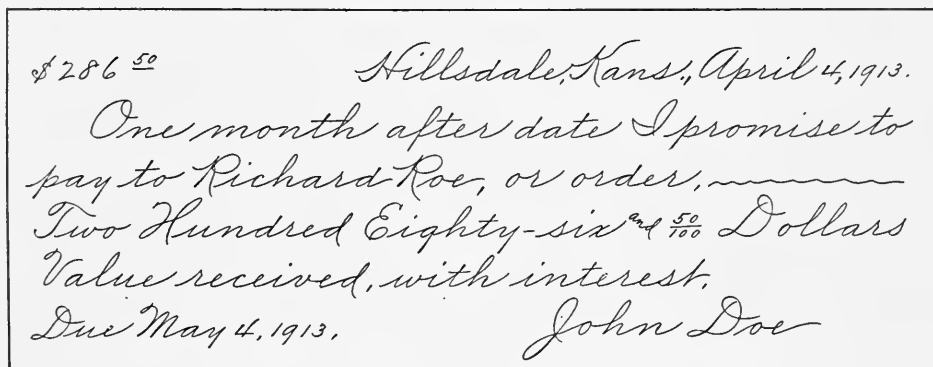 $286 50 Hillsdale, Kans., April 4, 1913.
One month after date I promise to
pay to Richard Roe, or order,
Two Hundred Eighty-six and 50/100 Dollars
Value received, with interest.
Due May 4, 1913. John Doe